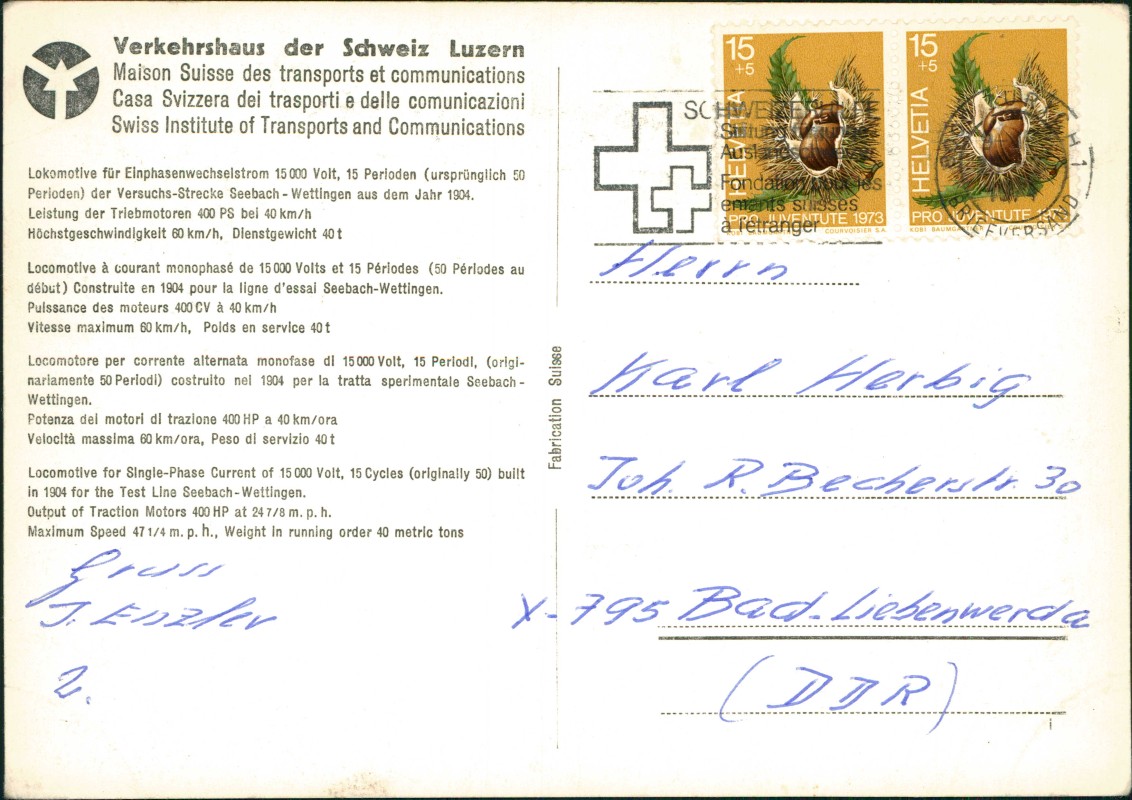 Verkehrshaus der Schweiz Luzern
Maison Suisse des transports et communications
Casa Svizzera dei trasporti e delle comunicazioni
Swiss Institute of Transports and Communications
Lokomotive für Einphasenwechselstrom 15 000 Volt, 15 Perioden (ursprünglich 50
Perioden) der Versuchs-Strecke Seebach - Wettingen aus dem Jahr 1904.
Leistung der Triebmotoren 400 PS bei 40 km/h
Höchstgeschwindigkeit 60 km/h, Dienstgewicht 40 t
Locomotive à courant monophasé de 15 000 Volts et 15 Périodes (50 Périodes au
début) Construite en 1904 pour la ligne d'essai Seebach-Wettingen.
Puissance des moteurs 400 CV à 40 km/h
Vitesse maximum 60 km/h, Poids en service 40 t
Locomotore per corrente alternata monofase di 15 000 Volt, 15 Periodi, (origi-
nariamente 50 Periodi) costruito nel 1904 per la tratta sperimentale Seebach -
Wettingen.
Potenza dei motori di trazione 400 HP a 40 km/ora
Velocità massima 60 km/ora, Peso di servizio 40 t
Locomotive for Single-Phase Current of 15 000 Volt, 15 Cycles (originally 50) built
in 1904 for the Test Line Seebach - Wettingen.
Output of Traction Motors 400 HP at 24 7/8 m. p. h.
Maximum Speed 47 1/4 m. p. h., Weight in running order 40 metric tons
Gruss
J. Enzler
2.
Fabrication Suisse
15
+5
HELVETIA
PRO JUVENTUTE 1973
COURVOISIER S.A.
15
+5
HELVETIA
PRO JUVENTUTE
KOBI BAUMGARTNER
Stiftung
Fondation pour les
enfants suisses
à l'étranger
BRIEFVERSAND
Herrn
Karl Herbig
Joh. R. Becherstr. 30
X-795 Bad-Liebenwerda
(DDR)